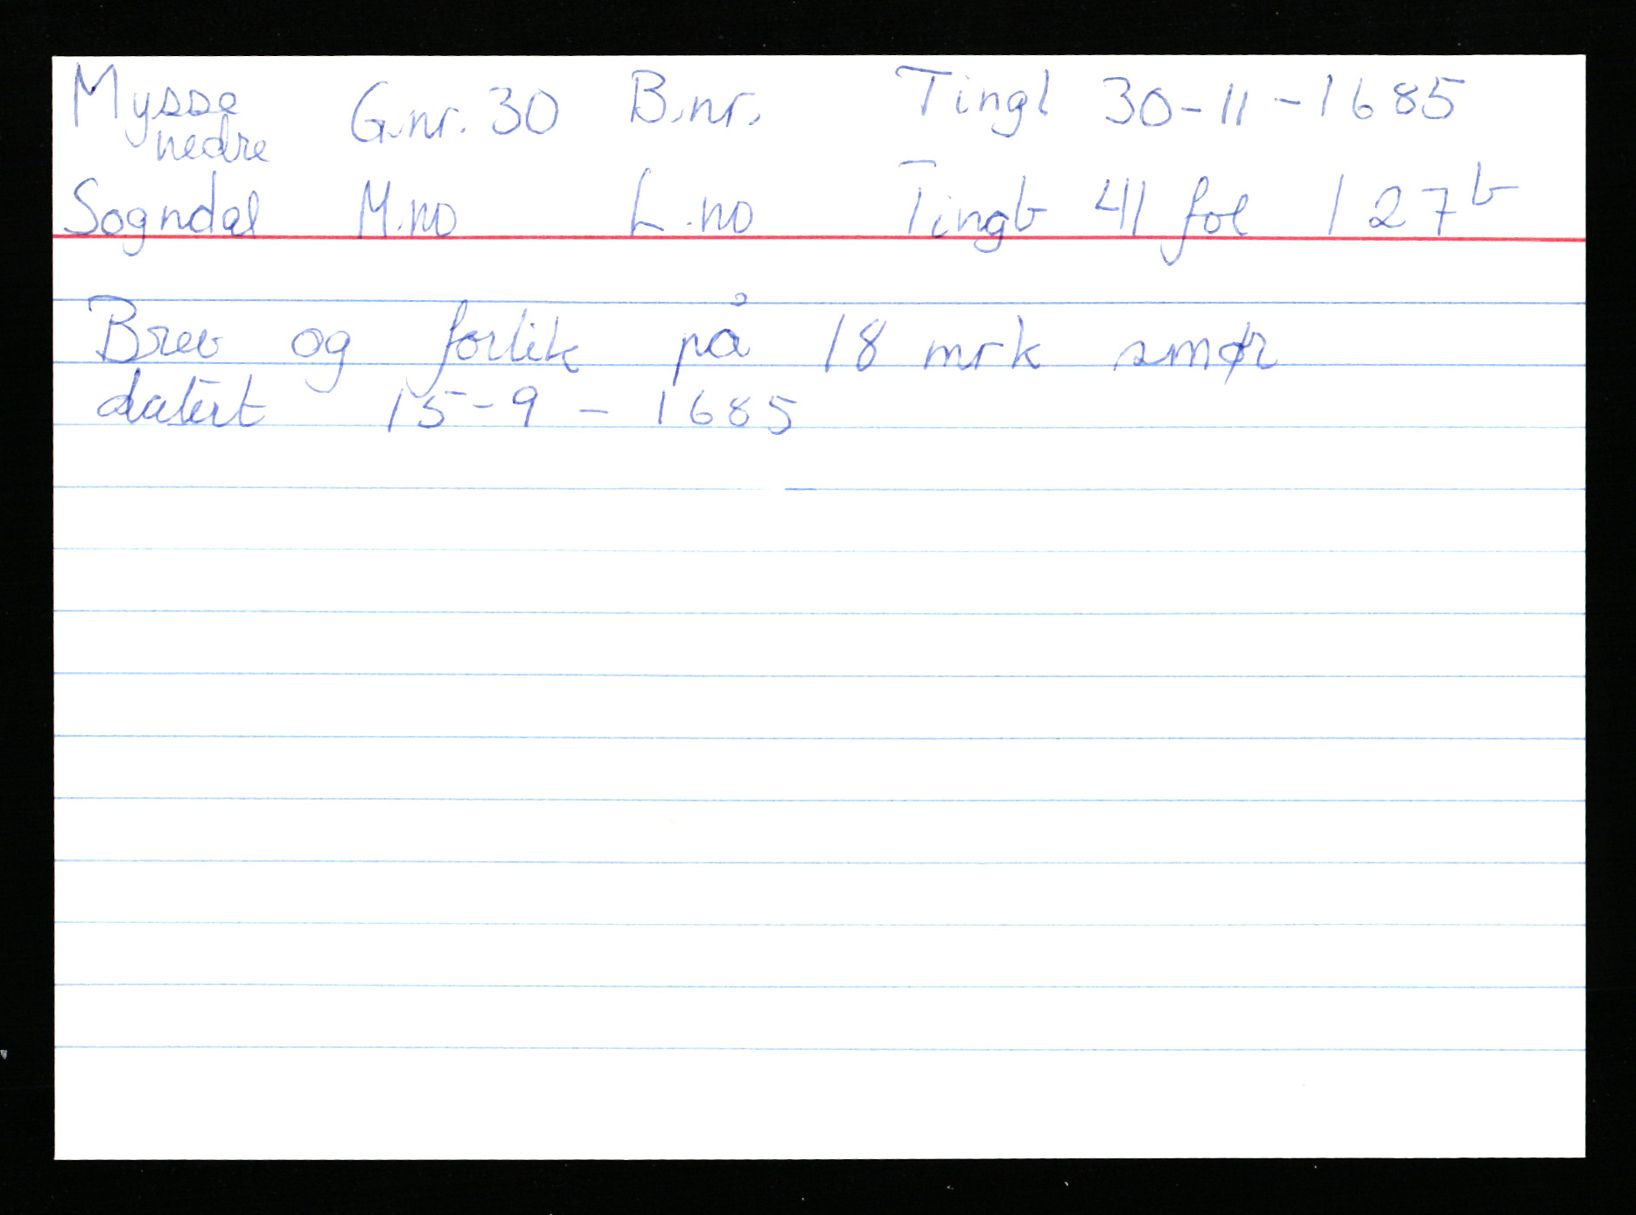 Mysse G.nr. 30 B.nr. Tingl 30-11-1685
nedre
Sogndal M.no L.no Tingb 41 fol 127b
Brev og forlik på 18 mrk smør
datert 15-9-1685